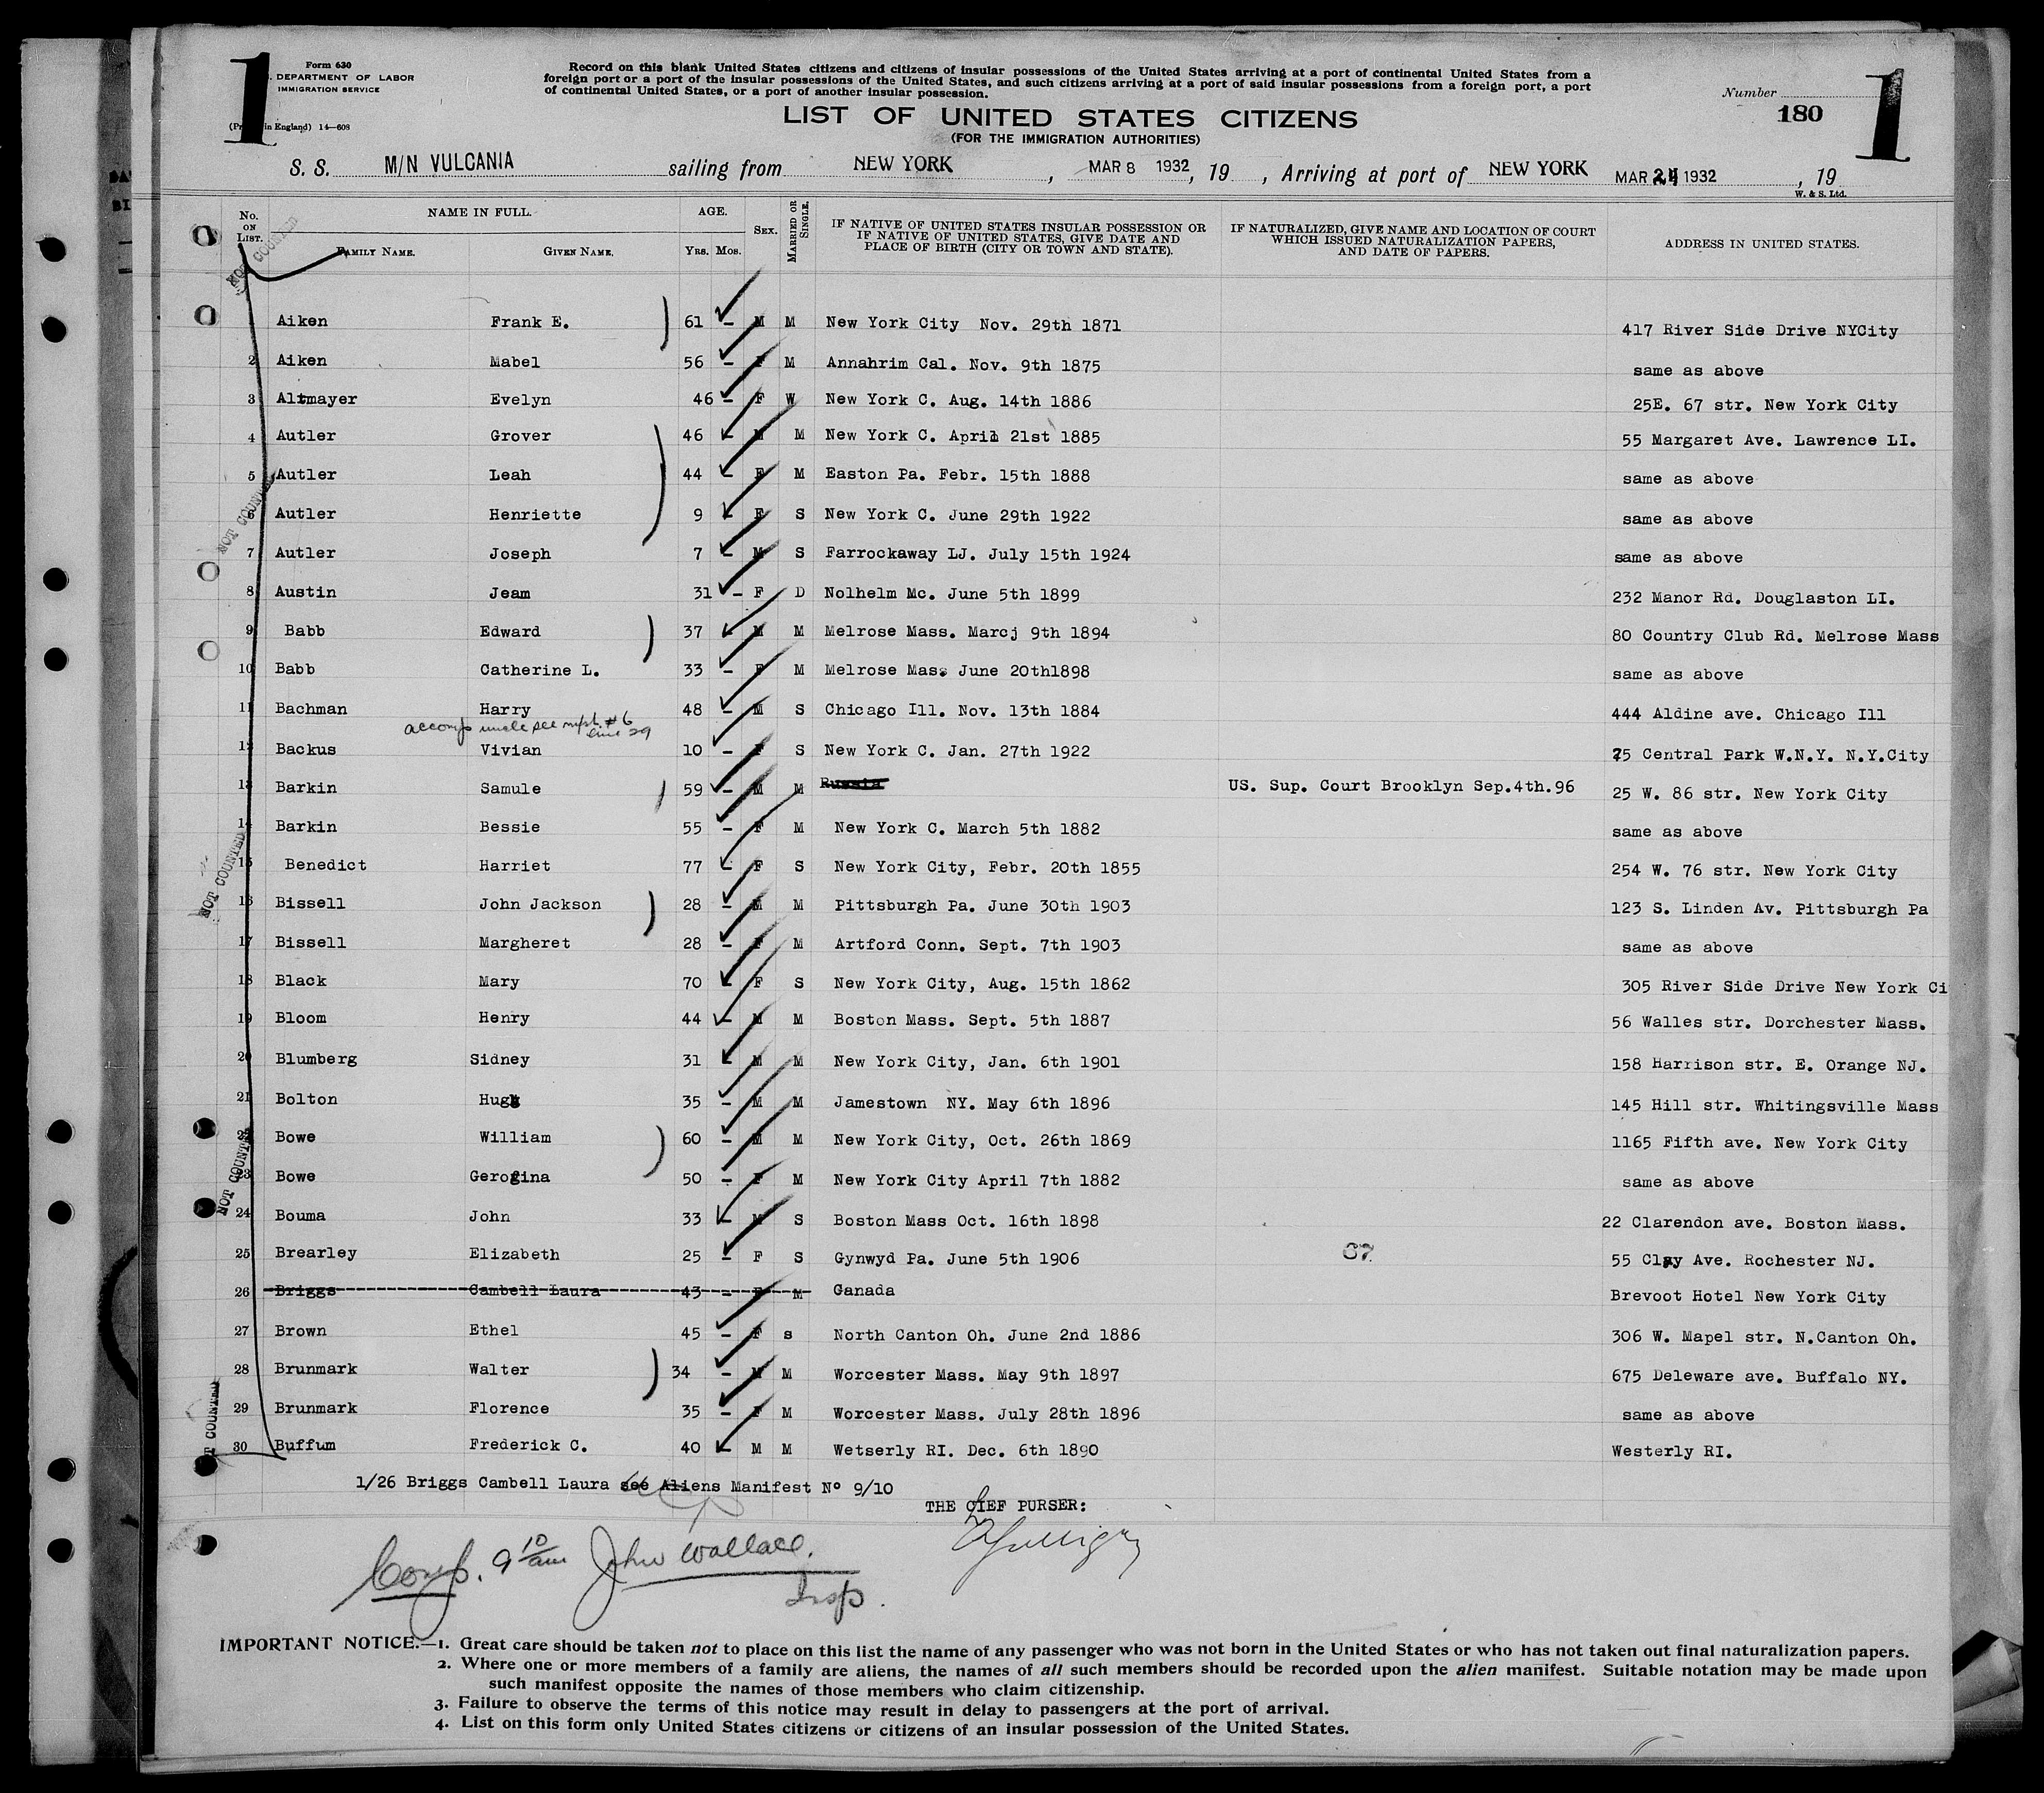 1
Form 630
. DEPARTMENT OF LABOR
IMMIGRATION SERVICE
(Pr in England) 14—608
Record on this blank United States citizens and citizens of insular possessions of the United States arriving at a port of continental United States from a
foreign port or a port of the insular possessions of the United States, and such citizens arriving at a port of said insular possessions from a foreign port, a port
of continental United States, or a port of another insular possession.
Number
180
1
LIST OF UNITED STATES CITIZENS
(FOR THE IMMIGRATION AUTHORITIES)
S. S. M/N VULCANIA sailing from NEW YORK , MAR 8 1932, 19 , Arriving at port of NEW YORK MAR 24 1932 , 19
W. & S. Ltd.
No. ON LIST. NAME IN FULL. FAMILY NAME. GIVEN NAME. AGE. YRS. MOS. SEX. MARRIED OR SINGLE. IF NATIVE OF UNITED STATES INSULAR POSSESSION OR IF NATIVE OF UNITED STATES, GIVE DATE AND PLACE OF BIRTH (CITY OR TOWN AND STATE). IF NATURALIZED, GIVE NAME AND LOCATION OF COURT WHICH ISSUED NATURALIZATION PAPERS, AND DATE OF PAPERS. ADDRESS IN UNITED STATES.
Aiken Frank E. 61 – M M New York City Nov. 29th 1871 417 River Side Drive NYCity
2 Aiken Mabel 56 – F M Annahrim Cal. Nov. 9th 1875 same as above
3 Altmayer Evelyn 46 – F W New York C. Aug. 14th 1886 25E. 67 str. New York City
4 Autler Grover 46 – M M New York C. April 21st 1885 55 Margaret Ave. Lawrence LI.
5 Autler Leah 44 – F M Easton Pa. Febr. 15th 1888 same as above
6 Autler Henriette 9 – F S New York C. June 29th 1922 same as above
7 Autler Joseph 7 – M S Farrockaway LJ. July 15th 1924 same as above
8 Austin Jeam 31 – F D Nolhelm Mc. June 5th 1899 232 Manor Rd. Douglaston LI.
9 Babb Edward 37 – M M Melrose Mass. Marcj 9th 1894 80 Country Club Rd. Melrose Mass
10 Babb Catherine L. 33 – F M Melrose Mass June 20th1898 same as above
11 Bachman Harry 48 – M S Chicago Ill. Nov. 13th 1884 444 Aldine ave. Chicago Ill
accomp uncle see mfst. #6
line 29
12 Backus Vivian 10 – F S New York C. Jan. 27th 1922 75 Central Park W.N.Y. N.Y.City
13 Barkin Samule 59 – M M Russia US. Sup. Court Brooklyn Sep.4th.96 25 W. 86 str. New York City
14 Barkin Bessie 55 – F M New York C. March 5th 1882 same as above
15 Benedict Harriet 77 – F S New York City, Febr. 20th 1855 254 W. 76 str. New York City
16 Bissell John Jackson 28 – M M Pittsburgh Pa. June 30th 1903 123 S. Linden Av. Pittsburgh Pa
17 Bissell Margheret 28 – F M Artford Conn. Sept. 7th 1903 same as above
18 Black Mary 70 – F S New York City, Aug. 15th 1862 305 River Side Drive New York Ci
19 Bloom Henry 44 – M M Boston Mass. Sept. 5th 1887 56 Walles str. Dorchester Mass.
20 Blumberg Sidney 31 – M M New York City, Jan. 6th 1901 158 Harrison str. E. Orange NJ.
21 Bolton Hugh 35 – M M Jamestown NY. May 6th 1896 145 Hill str. Whitingsville Mass
22 Bowe William 60 – M M New York City, Oct. 26th 1869 1165 Fifth ave. New York City
23 Bowe Gerogina 50 – F M New York City April 7th 1882 same as above
24 Bouma John 33 – M S Boston Mass Oct. 16th 1898 22 Clarendon ave. Boston Mass.
25 Brearley Elizabeth 25 – F S Gynwyd Pa. June 5th 1906 67 55 Clay Ave. Rochester NJ.
26 Briggs Cambell Laura 43 – F M Canada Brevoot Hotel New York City
27 Brown Ethel 45 – F s North Canton Oh. June 2nd 1886 306 W. Mapel str. N.Canton Oh.
28 Brunmark Walter 34 – M M Worcester Mass. May 9th 1897 675 Deleware ave. Buffalo NY.
29 Brunmark Florence 35 – F M Worcester Mass. July 28th 1896 same as above
30 Buffum Frederick C. 40 – M M Wetserly RI. Dec. 6th 1890 Westerly RI.
NOT COUNTED
NOT COUNTED
NOT COUNTED
NOT COUNTED
1/26 Briggs Cambell Laura see Aliens Manifest No 9/10
THE CIEF PURSER:
Comp. 9 10/am John Wallace.
Insp.
IMPORTANT NOTICE.—1. Great care should be taken not to place on this list the name of any passenger who was not born in the United States or who has not taken out final naturalization papers.
2. Where one or more members of a family are aliens, the names of all such members should be recorded upon the alien manifest. Suitable notation may be made upon
such manifest opposite the names of those members who claim citizenship.
3. Failure to observe the terms of this notice may result in delay to passengers at the port of arrival.
4. List on this form only United States citizens or citizens of an insular possession of the United States.